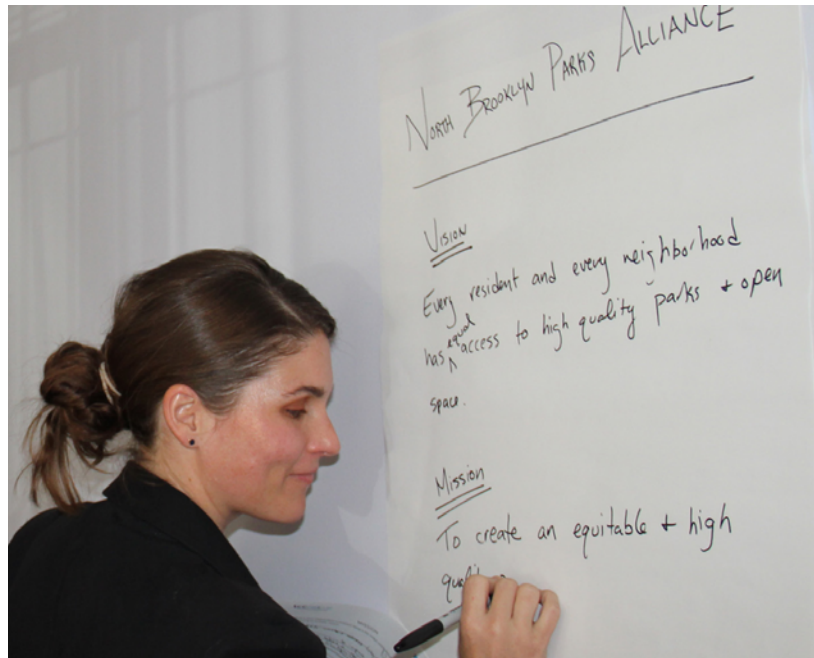 NORTH BROOKLYN PARKS ALLIANCE
VISION
Every resident and every neighborhood
has equal access to high quality parks + open
space.
MISSION
To create an equitable + high